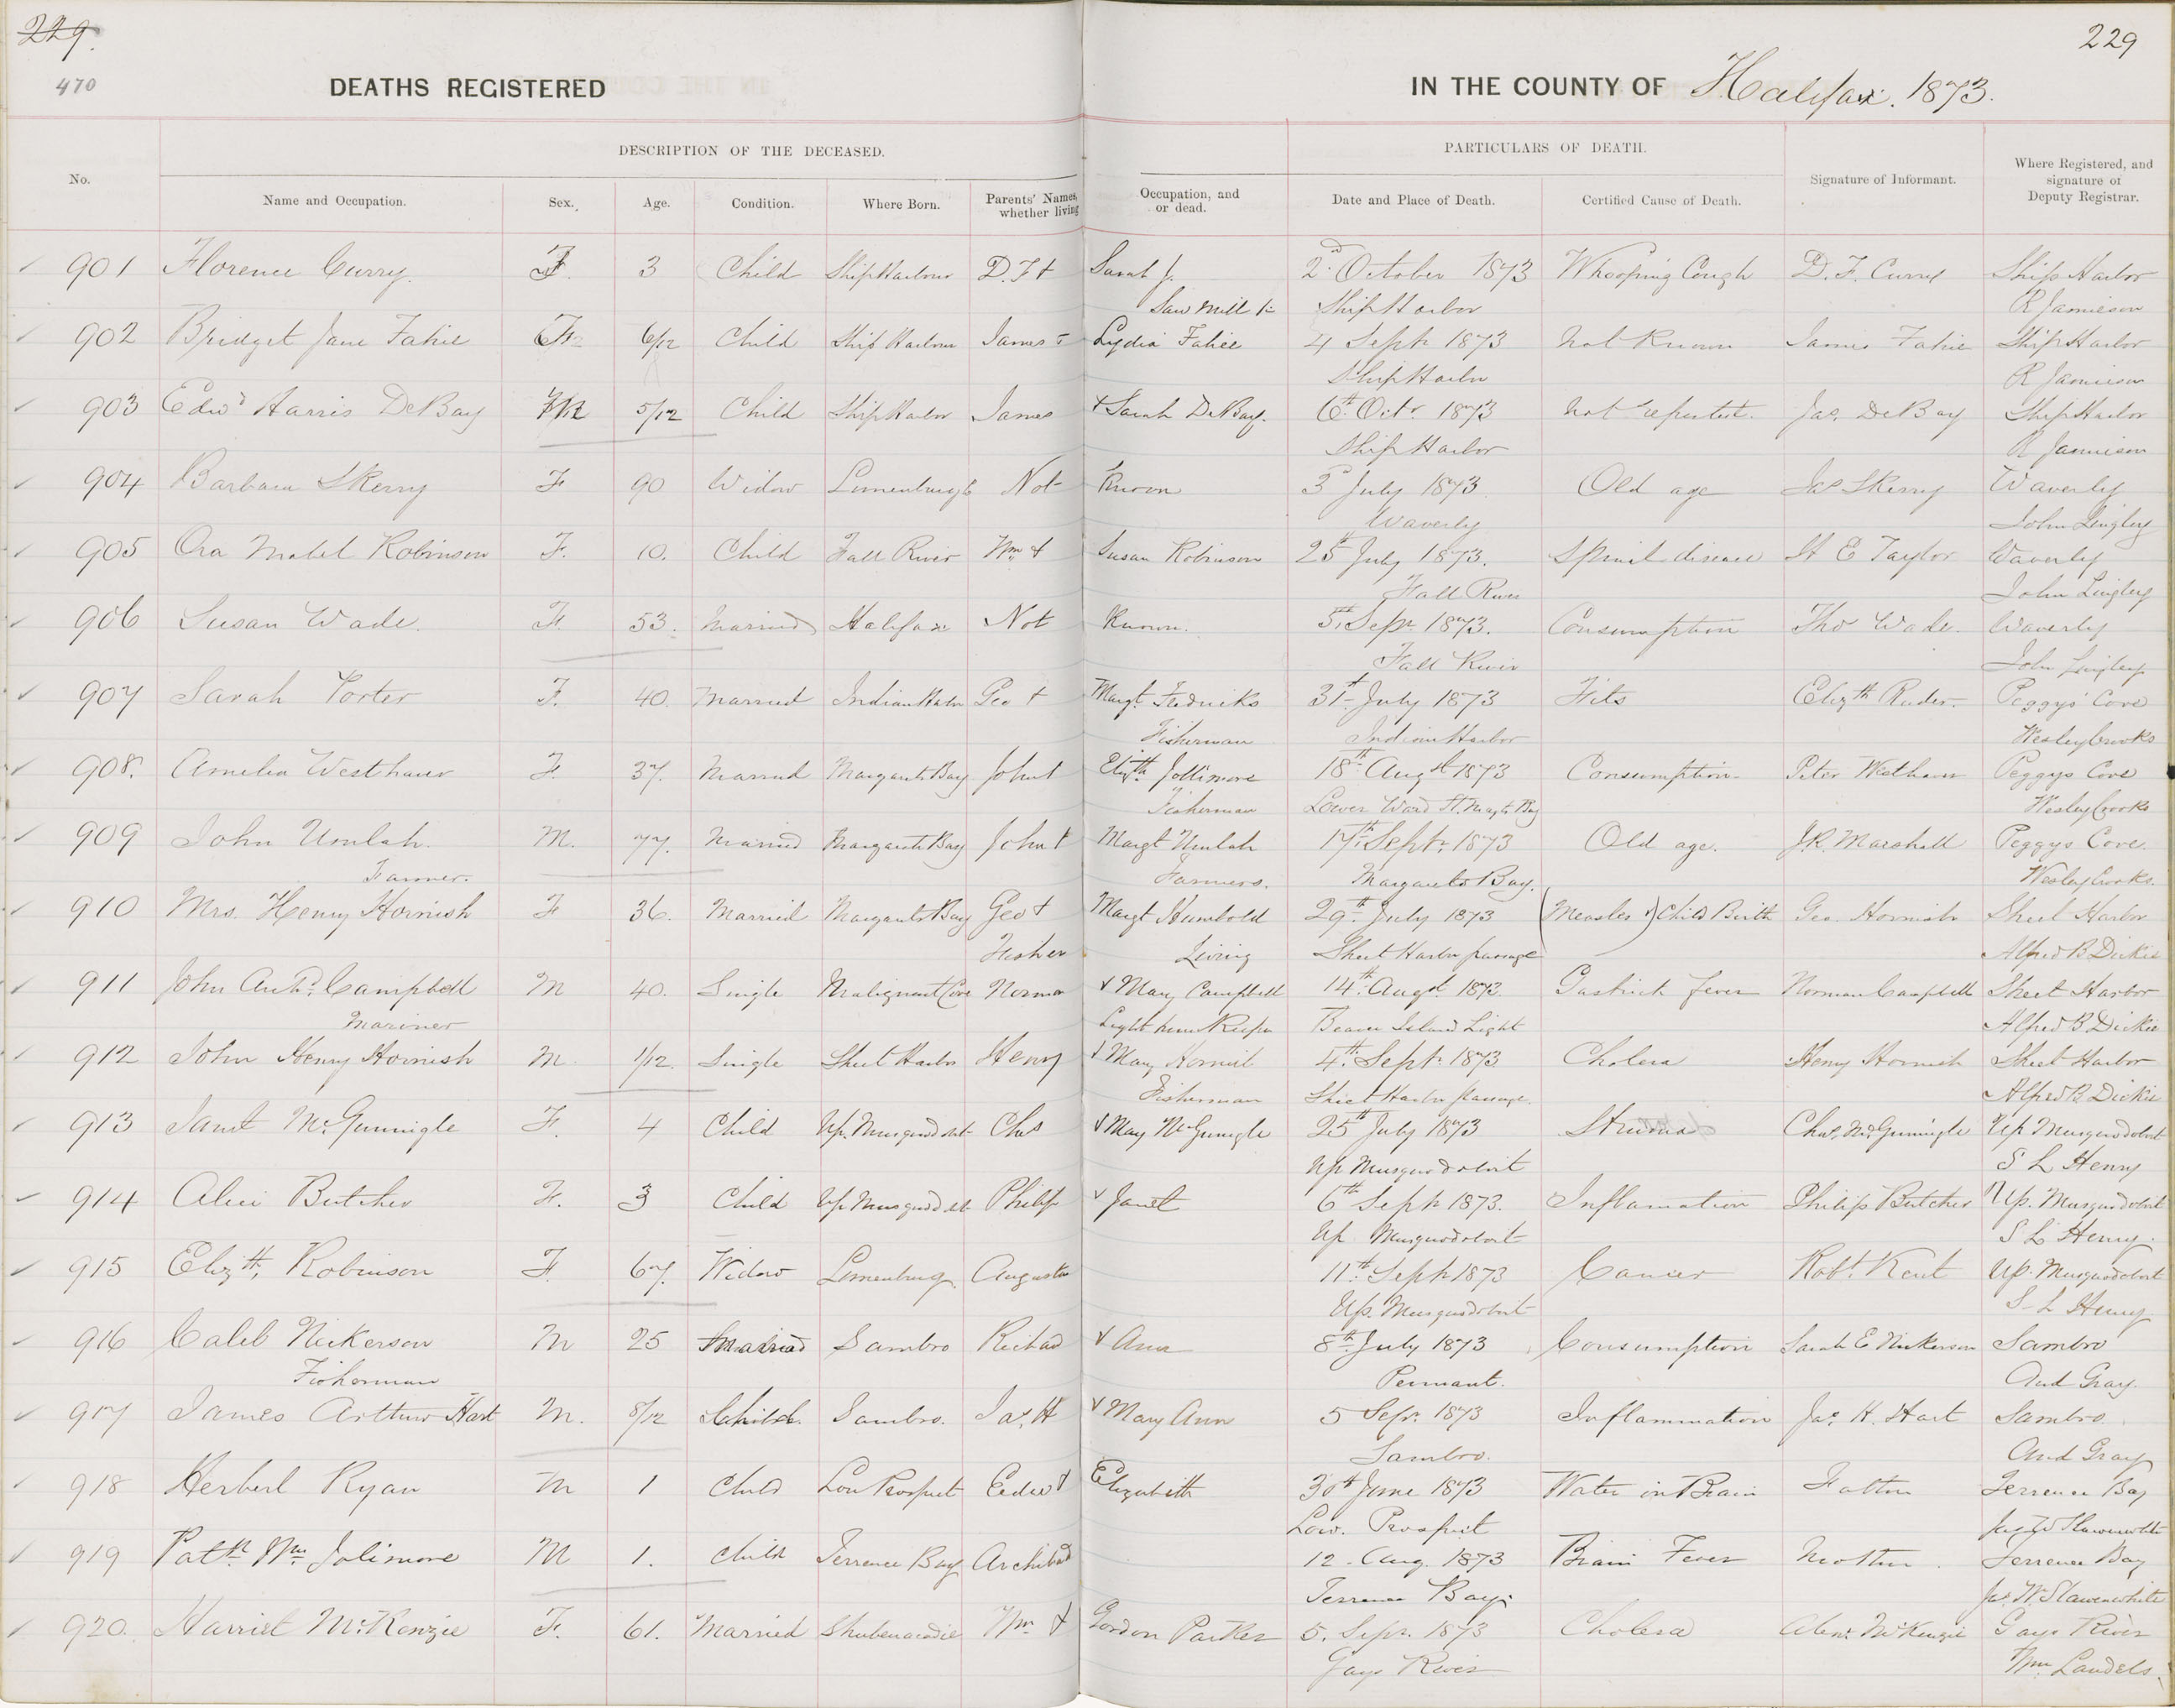 229.
229
470
DEATHS REGISTERED IN THE COUNTY OF Halifax. 1873.
DESCRIPTION OF THE DECEASED. PARTICULARS OF DEATH.
No. Name and Occupation. Sex. Age. Condition. Where Born. Parents' Names, whether living Occupation, and or dead. Date and Place of Death. Certified Cause of Death. Signature of Informant. Where Registered, and signature of Deputy Registrar.
901 Florence Curry. F. 3 Child Ship Harbour D. F & Sarah J. 2nd October 1873 Whooping Cough D. F. Curry Ship Harbor
Saw Mill Ship Harbor R Jamieson
902 Bridget Jane Fahie F 6/12 Child Ship Harbour James & Lydia Fahie 4 Sept 1873 Not Known James Fahie Ship Harbor
Ship Harbor R Jamieson
903 Edwd Harris DeBay M 5/12 Child Ship Harbor James & Sarah DeBay. 6th Octr 1873 Not reported. Jas. DeBay Ship Harbor
Ship Harbor R Jamieson
904 Barbara Skerry F 90 Widow Lunenburgh Not Known 3d July 1873 Old age Jas Skerry Waverly
Waverly John Lingley
905 Ora Mabel Robinson F. 10. Child Fall River Wm & Susan Robinson 25th July 1873. Spinal disease H E Taylor Waverly
Fall River John Lingley
906 Susan Wade. F. 53. Married Halifax Not Known. 5th Sepr 1873. Consumption Tho Wade. Waverly
Fall River John Lingley
907 Sarah Porter F. 40. Married Indian Harbr Geo & Margt. Fredricks 31st July 1873 Fits Elizth Ruder. Peggys Cove
Fisherman Indian Harbor Wesley Crooks
908. Amelia Westhaver F. 37. Married Margarets Bay John & Elizth Jollimore 18th Augst 1873 Consumption Peter Westhaver Peggys Cove
Fisherman Lower Ward St. Margts Bay Wesley Crooks
909 John Umlah. M. 77. Married Margarets Bay John & Margt Umlah 17th Sept. 1873 Old age. J.R. Marshall Peggys Cove.
Farmer. Farmers. Margarets Bay. Wesley Crooks.
910 Mrs. Henry Hornish F 36. Married Margarets Bay Geo & Margt Humbold 29th July 1873 (Measles &) Child Birth Geo. Hornish Sheet Harbor
Fisher Living Sheet Harbor passage Alfred B Dickie
911 John Campbell M 40. Single Malignant Cove Norman & Mary Campbell 14th Augst. 1873. Gastrick fever Norman Campbell Sheet Harbor
Mariner Light house Keeper Beaver Island Light Alfred B Dickie
912 John Henry Hornish M. 1/12. Single Sheet Harbor Henry & Mary Hornish 4th Sept. 1873 Cholera Henry Hornish Sheet Harbor
Fisherman Sheet Harbor passage. Alfred B Dickie
913 Janet McGunnigle F. 4 Child Up. Musquodobt Chas & Mary McGunigle 25th July 1873 Struma Chas. McGunnigle Up Musquodoboit
Up Musquodoboit S L Henry
914 Alice Butcher F. 3 Child Up Musquodobt Philip & Janet 6th Sept 1873. Inflamation Philip Butcher Up. Musquodoboit
Up Musquodoboit S L Henry.
915 Elizth. Robinson F. 67. Widow Lunenburg Augustus 11th Sept 1873 Cancer Robt. Kent Up. Musquodoboit
Up. Musquodoboit S L Henry
916 Caleb Nickerson M 25 Married Sambro Richad & Ann 8th July 1873 Consumption Sarah E Nickerson Sambro
Fisherman Pennant. And Gray.
917 James Arthur Hart M. 8/12 Child. Sambro. Jas. H & Mary Ann 5 Sepr. 1873 Inflammation Jas. H. Hart Sambro.
Sambro. And Gray
918 Herbert Ryan M 1 Child Low Prospect Edwd & Elizabeth 30th June 1873 Water on Brain Father Terrence Bay
Low. Prospect Jas W Slawenwhite
919 Patk. Wm. Jolimore M 1. Child Terrence Bay Archibad 12. Aug. 1873 Brain Fever Mother. Terrence Bay
Terrence Bay. Jas. W. Slawenwhite
920. Harriet McKenzie F. 61. Married Shubenacadie Wm & Gordon Parker 5. Sepr. 1873 Cholera Alexr McKenzie Gays River
Gays River Wm Landels.